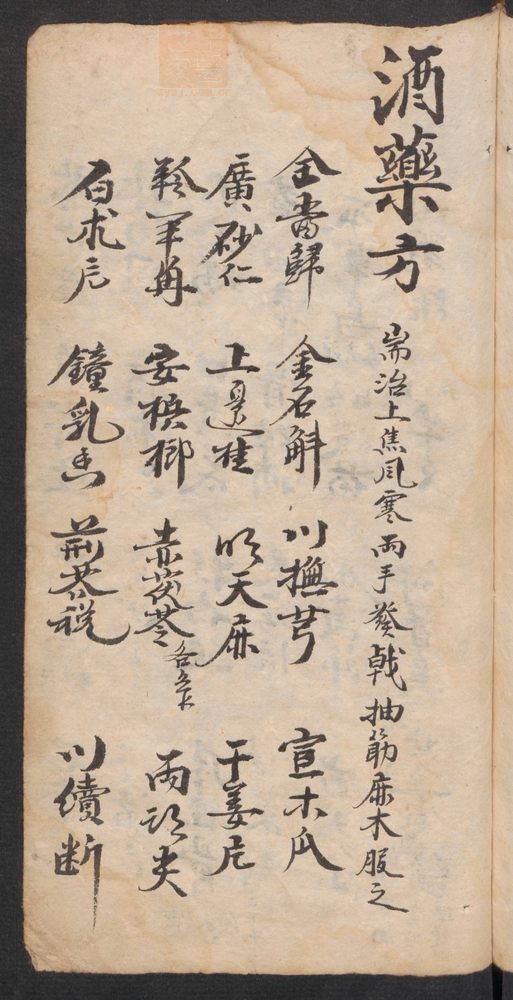 酒藥方
耑治上焦風寒兩手發戟抽筋麻木服之
全當歸 金石斛 川撫芎 宣木瓜
廣砂仁 上邊桂 明天麻 干姜片
羚羊角 安檳榔 赤茯苓 各 兩頭尖
白术片 鐘乳 荆芥 川續断